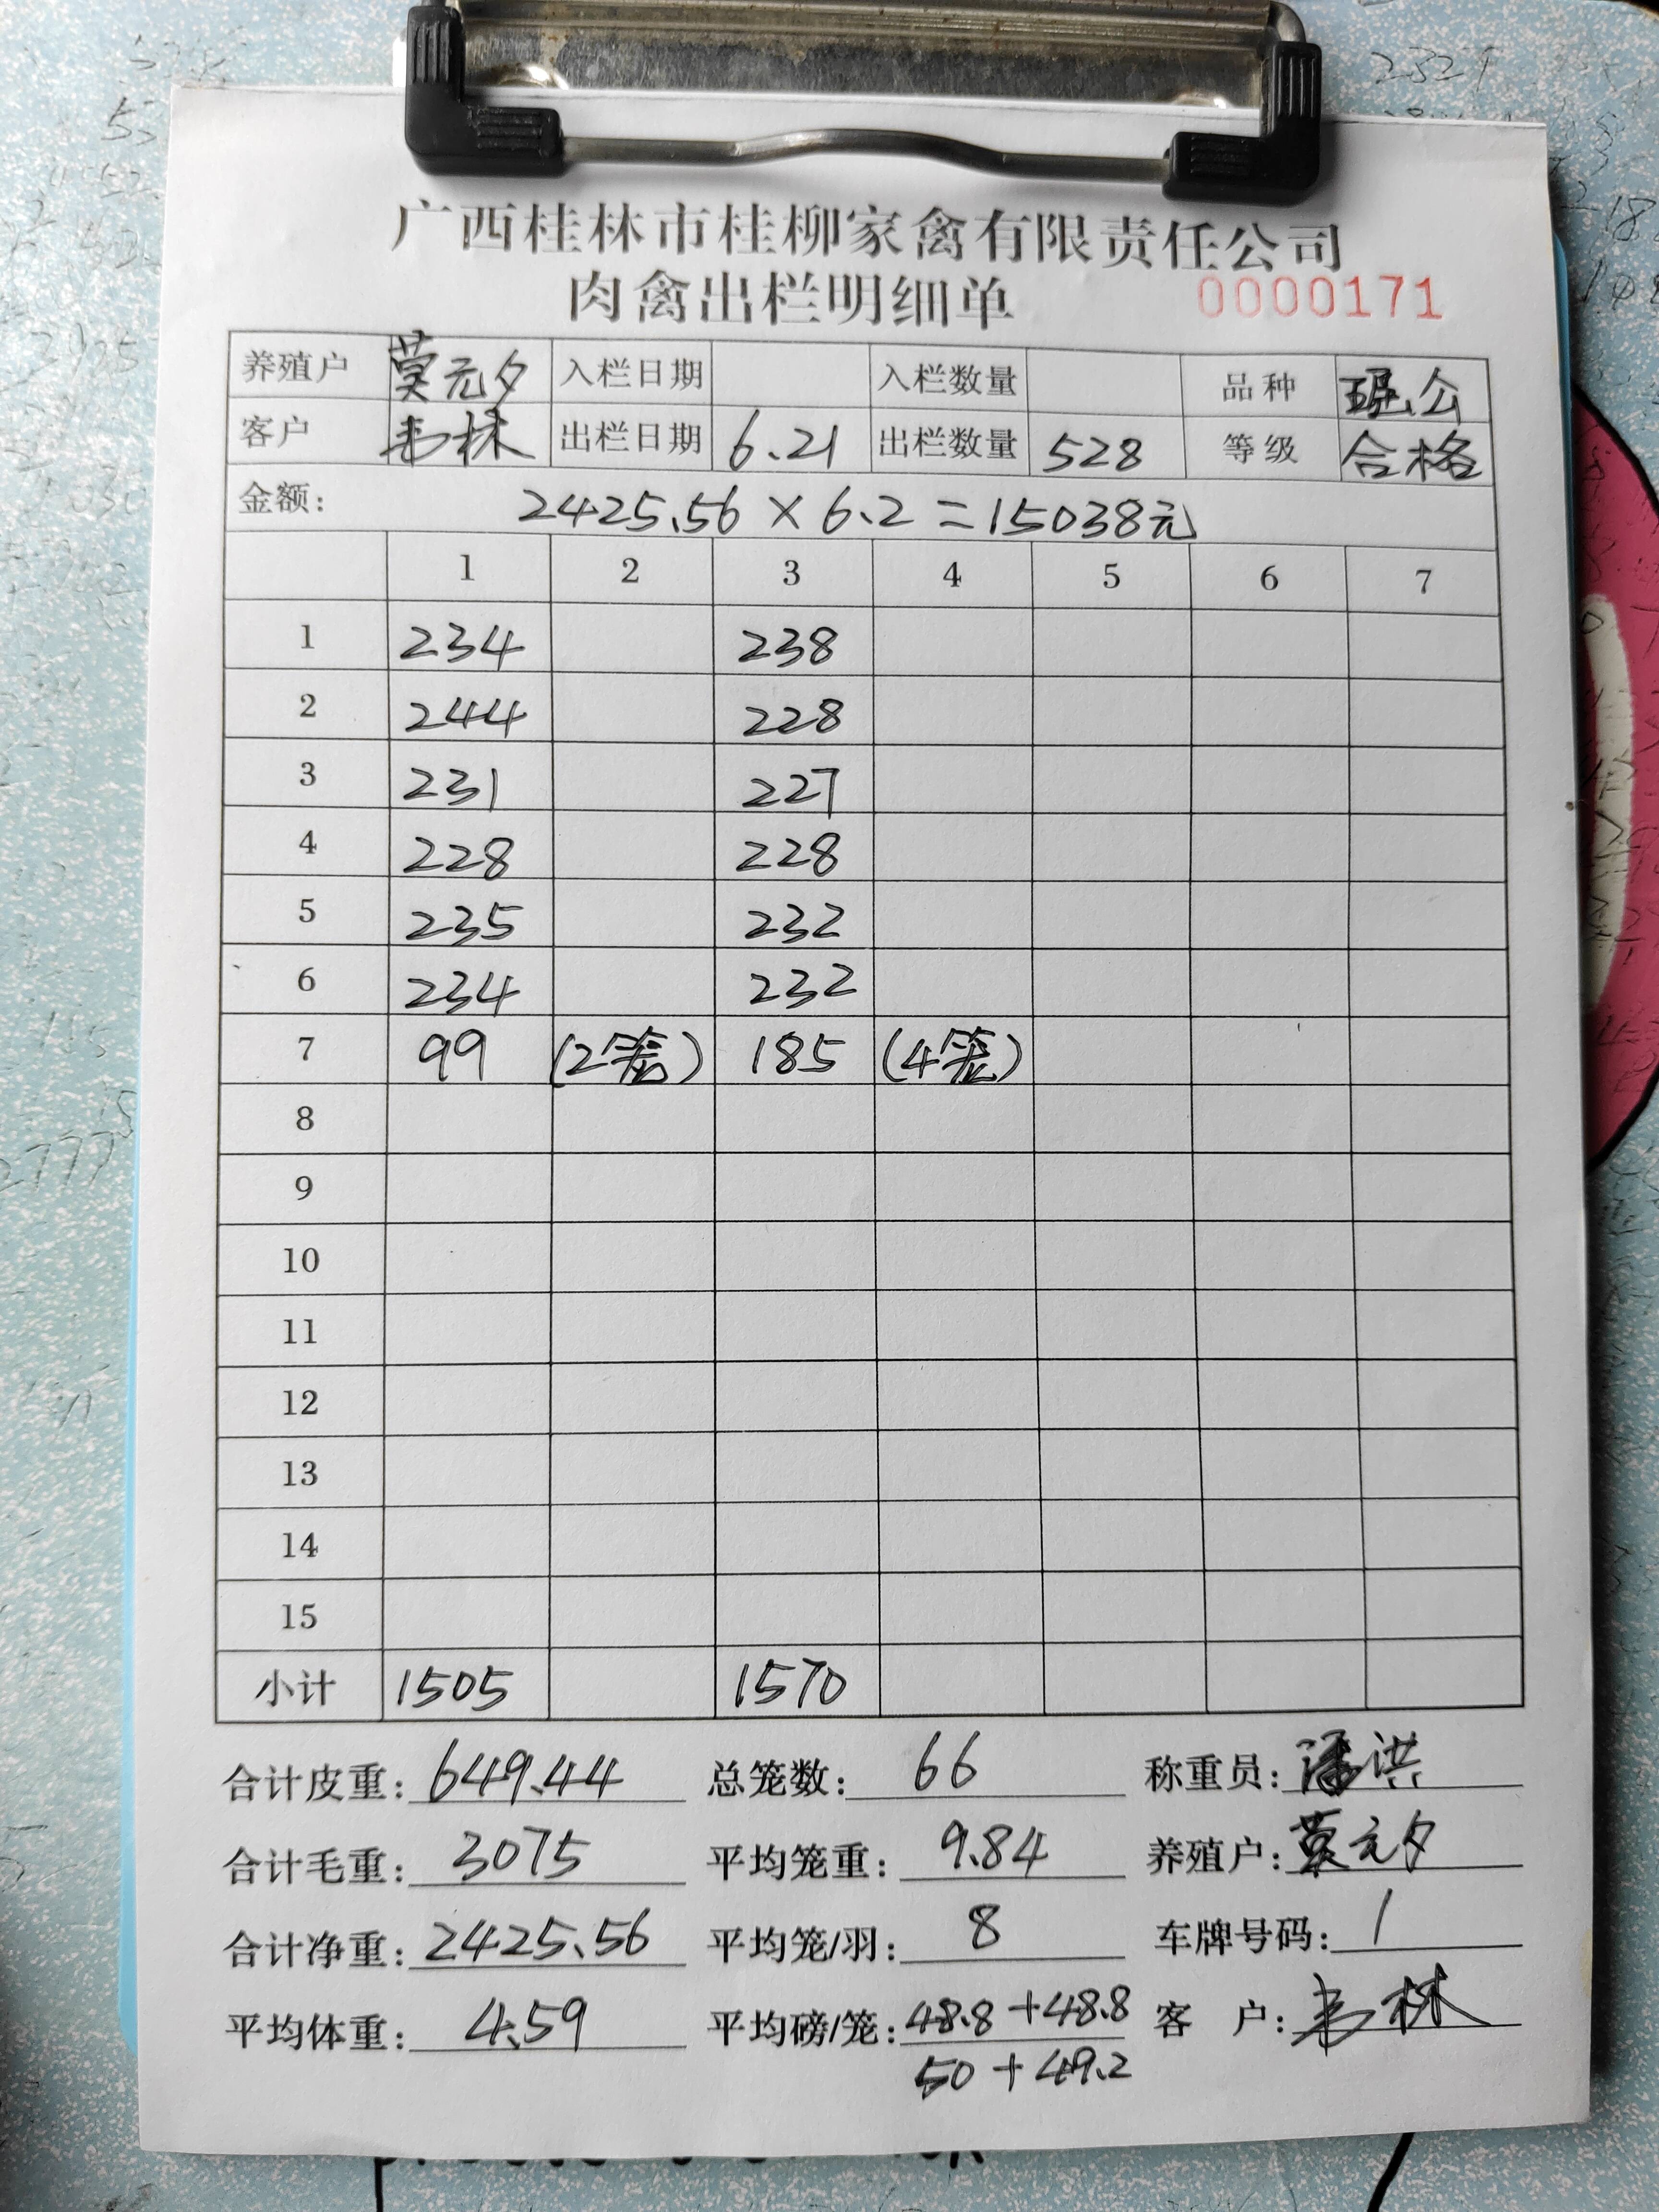 广西桂林市桂柳家禽有限责任公司
肉禽出栏明细单 0000171
养殖户 莫元夕 入栏日期 入栏数量 品种
客户 韦林 出栏日期 6.21 出栏数量 528 等级 合格
金额: 2425.56 × 6.2 = 15038元
1 2 3 4 5 6 7
1 234 238
2 244 228
3 231 227
4 228 228
5 235 232
6 234 232
7 99 (2笼) 185 (4笼)
8
9
10
11
12
13
14
15
小计 1505 1570
合计皮重: 649.44 总笼数: 66 称重员: 潘洪
合计毛重: 3075 平均笼重: 9.84 养殖户: 莫元夕
合计净重: 2425.56 平均笼/羽: 8 车牌号码: 1
平均体重: 4.59 平均磅/笼: 48.8 + 48.8 客 户: 韦林
50 + 49.2